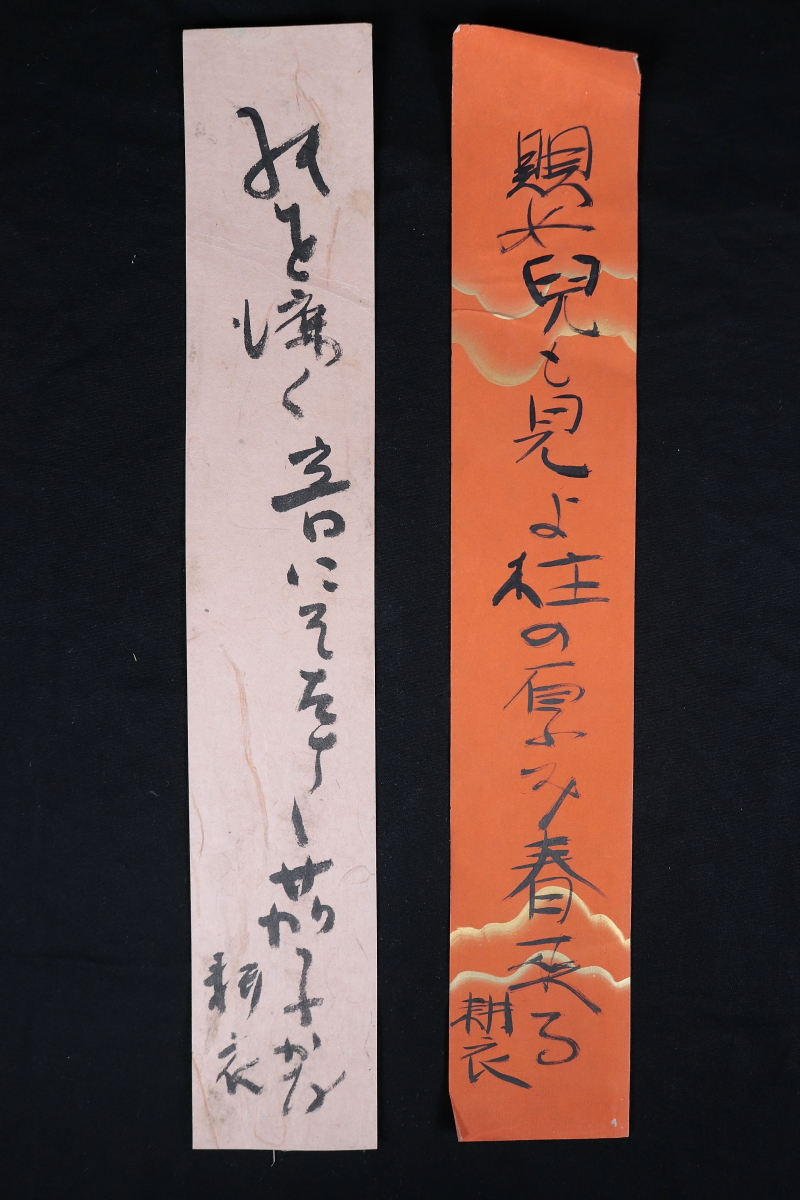 嬰兒も見よ柱の厚み春来る
耕衣
を く音にそ し茄子かな
耕衣